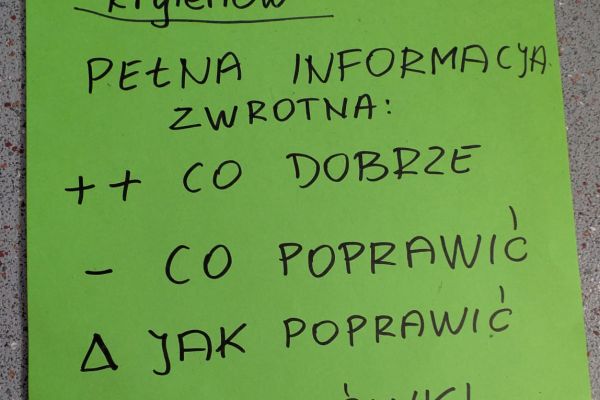 PEŁNA INFORMACJA
ZWROTNA:
++ CO DOBRZE
- CO POPRAWIĆ
Δ JAK POPRAWIĆ